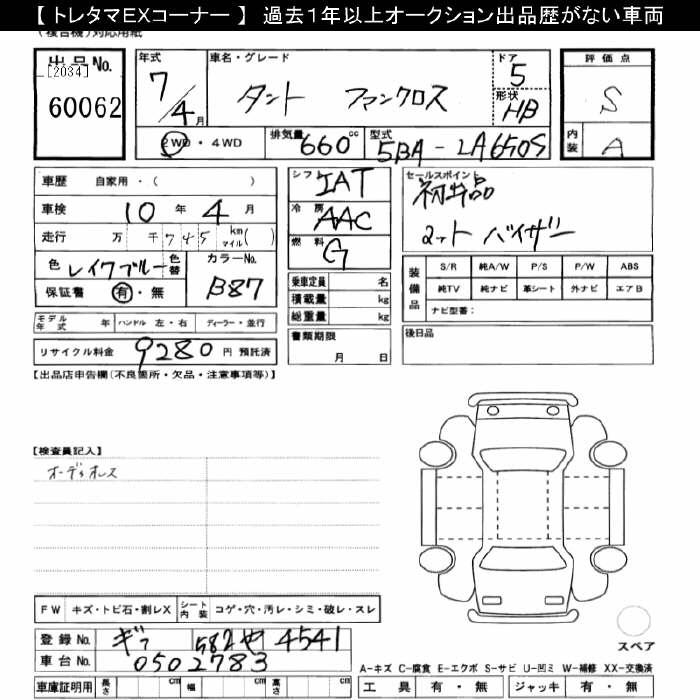 【 トレタマEXコーナー 】 過去1年以上オークション出品歴がない車両
(複合機)対応用紙
出品No. 年式 車名・グレード ドア 評価点
[2034] 7/4月 タント ファンクロス 5 S
60062 形状 HB 内装 A
2WD・4WD 排気量 660cc 型式 5BA-LA650S
車歴 自家用・( ) シフト IAT セールスポイント
車検 10年4月 冷房 AAC 初出品
走行 万 千 7 4 5 km マイル( ) 燃料 G 2ット バイザー
色 レイクブルー 色替 カラーNo.
保証書 有・無 B87
乗車定員 名
積載量 kg
総重量 kg
装備品 S/R 純A/W P/S P/W ABS
純TV 純ナビ 革シート 外ナビ エアB
ナビ型番:
モデル年式 年 ハンドル 左・右 ディーラー・並行
書類期限 月 日
後日品
リサイクル料金 9280 円 預託済
【出品店申告欄(不良箇所・欠品・注意事項等)】
【検査員記入】
オーディオレス
FW キズ・トビ石・割レX シート内装 コゲ・穴・汚レ・シミ・破レ・スレ
登録No. ギフ 582 せ 4541
車台No. 0502783
車庫証明用 長さ cm 幅 cm 高さ cm
スペア
A-キズ C-腐食 E-エクボ S-サビ U-凹ミ W-補修 XX-交換済
工具 有・無 ジャッキ 有・無